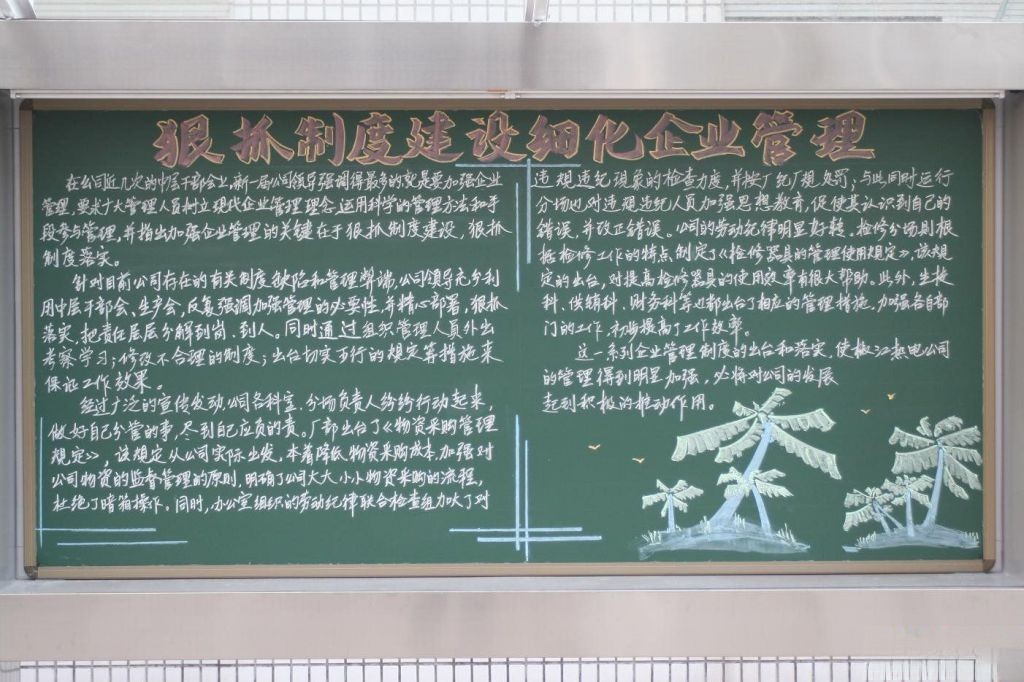 狠抓制度建设细化企业管理
在公司近几次的中层干部会上,新一届公司领导强调得最多的就是要加强企业
管理,要求广大管理人员树立现代企业管理理念,运用科学的管理方法和手
段参与管理,并指出加强企业管理的关键在于狠抓制度建设,狠抓
制度落实。
针对目前公司存在的有关制度缺陷和管理弊端,公司领导充分利
用中层干部会、生产会,反复强调加强管理的必要性,并精心部署,狠抓
落实,把责任层层分解到岗、到人。同时通过组织管理人员外出
考察学习;修改不合理的制度;出台切实可行的规定等措施来
保证工作效果。
经过广泛的宣传发动,公司各科室、分场负责人纷纷行动起来,
做好自己分管的事,尽到自己应负的责。厂部出台了《物资采购管理
规定》,该规定从公司实际出发,本着降低物资采购成本,加强对
公司物资的监督管理的原则,明确了公司大大小小物资采购的流程,
杜绝了暗箱操作。同时,办公室组织的劳动纪律联合检查组加大了对
违规违纪现象的检查力度,并按厂纪厂规处罚;与此同时运行
分场也对违规违纪人员加强思想教育,促使其认识到自己的
错误,并改正错误。公司的劳动纪律明显好转。检修分场则根
据检修工作的特点,制定了《检修器具的管理使用规定》,该规
定的出台,对提高检修器具的使用效率有很大帮助。此外,生技
科、供销科、财务科等也都出台了相应的管理措施,加强各自部
门的工作,初步提高了工作效率。
这一系列企业管理制度的出台和落实,使椒江热电公司
的管理得到明显加强,必将对公司的发展
起到积极的推动作用。